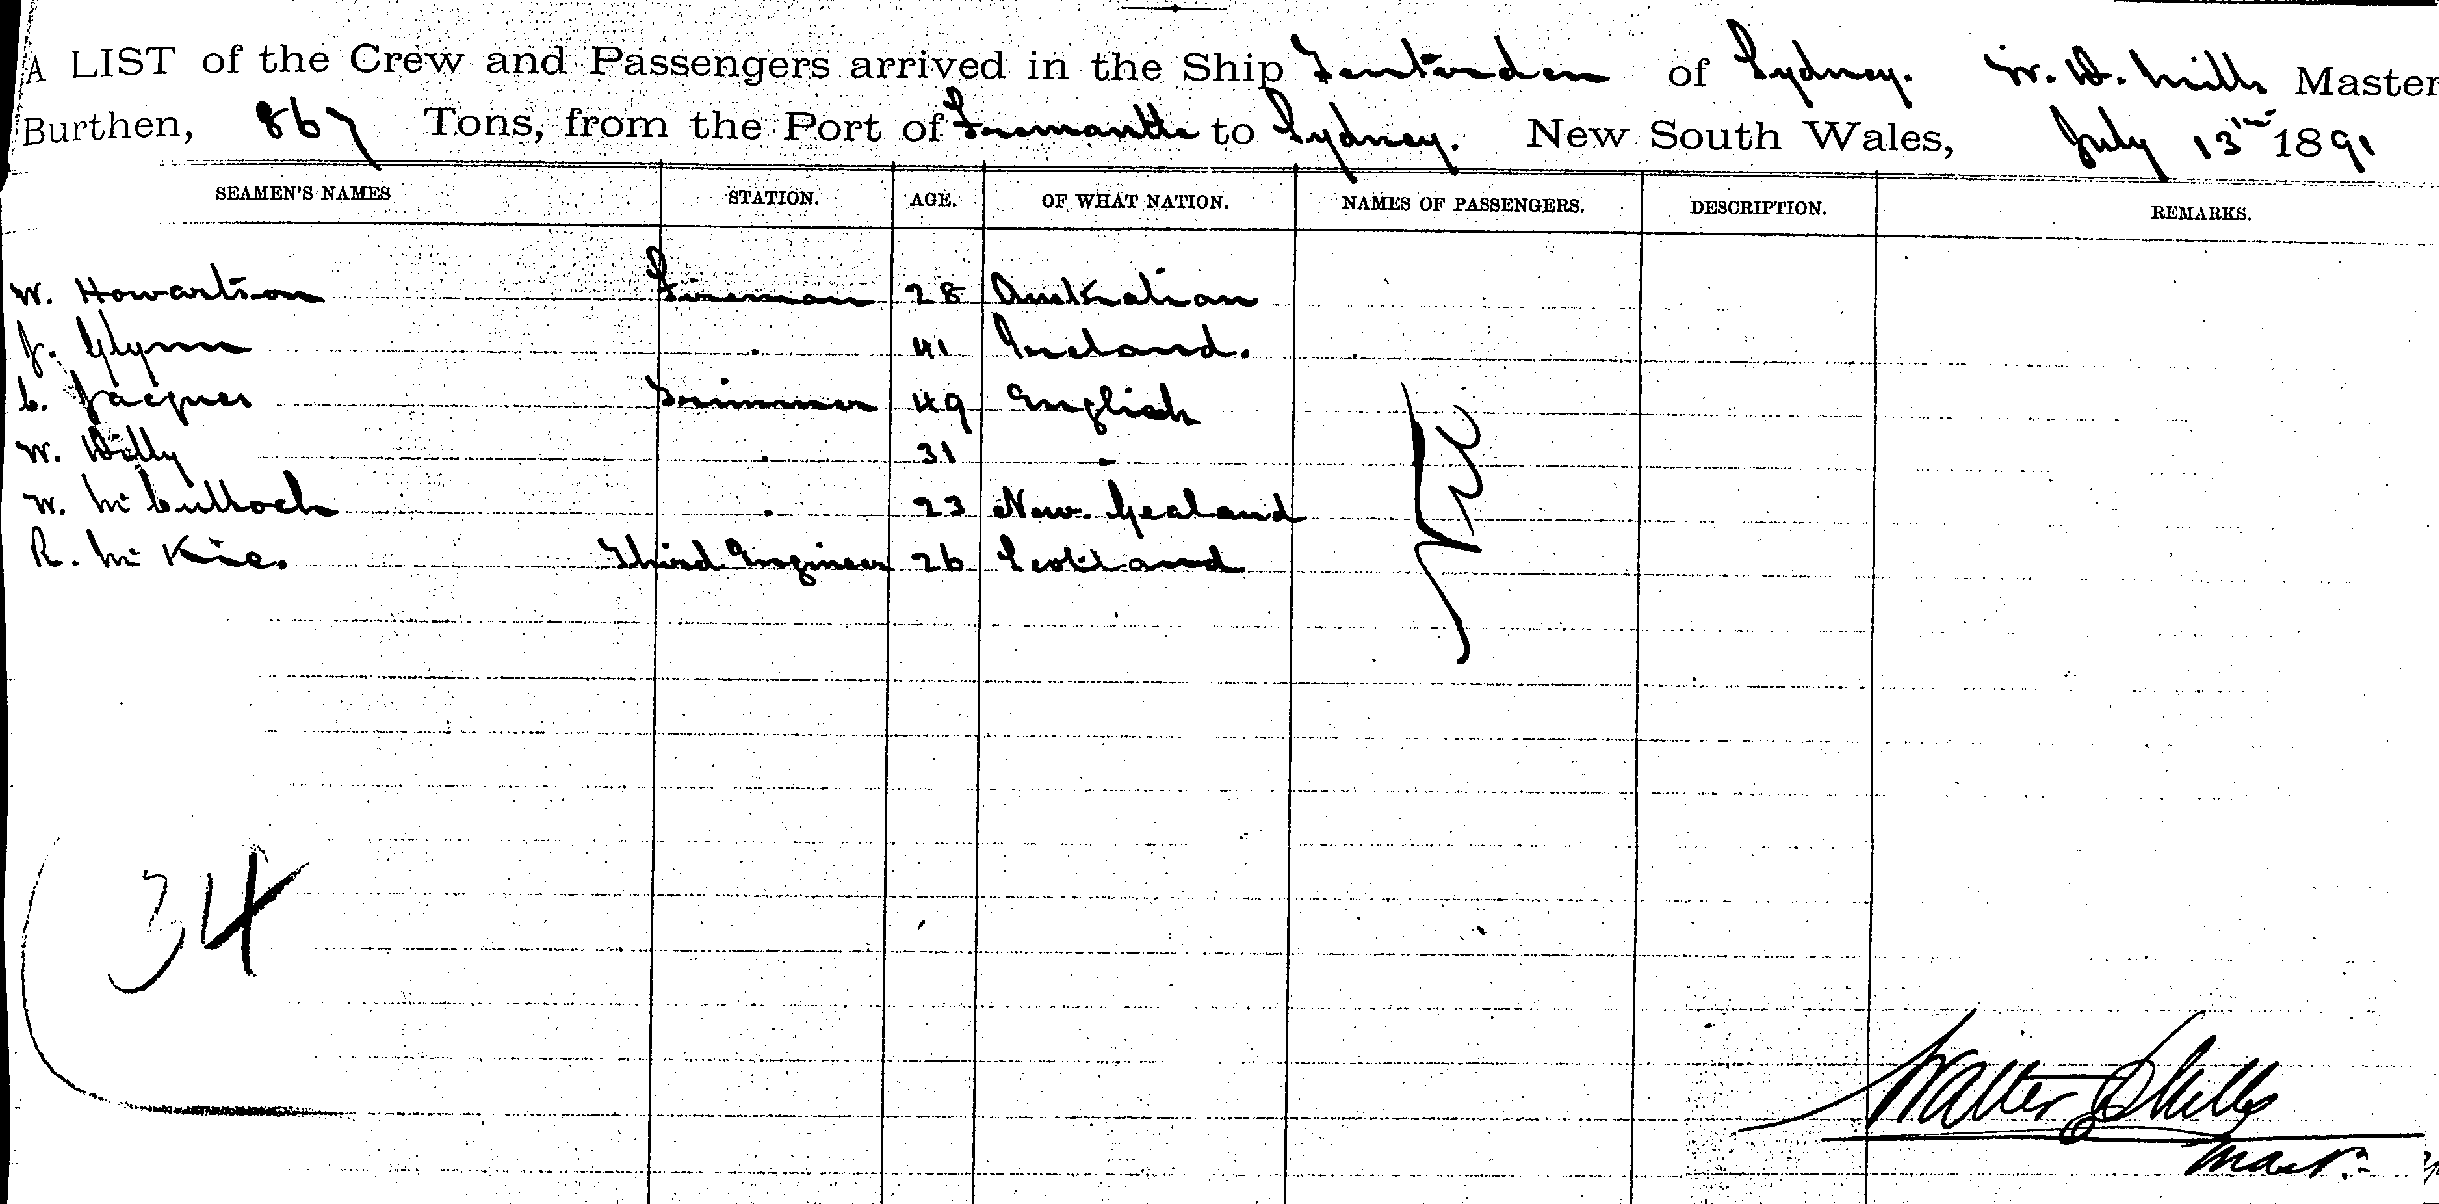 A LIST of the Crew and Passengers arrived in the Ship Tenterden of Sydney. W. D. Mills Master
Burthen, 867 Tons, from the Port of Fremantle to Sydney. New South Wales, July 13th 1891
SEAMEN'S NAMES STATION. AGE. OF WHAT NATION. NAMES OF PASSENGERS. DESCRIPTION. REMARKS.
W. Howartson Fireman 28 Australian
J. Glynn . 41 Ireland.
C. Jacques Trimmer 49 English
W. Dilly . 31 .
W. McCulloch . 23 New Zealand
R. McKie. Third Engineer 26 Scotland
Nil
34
Walter D Mills
Master